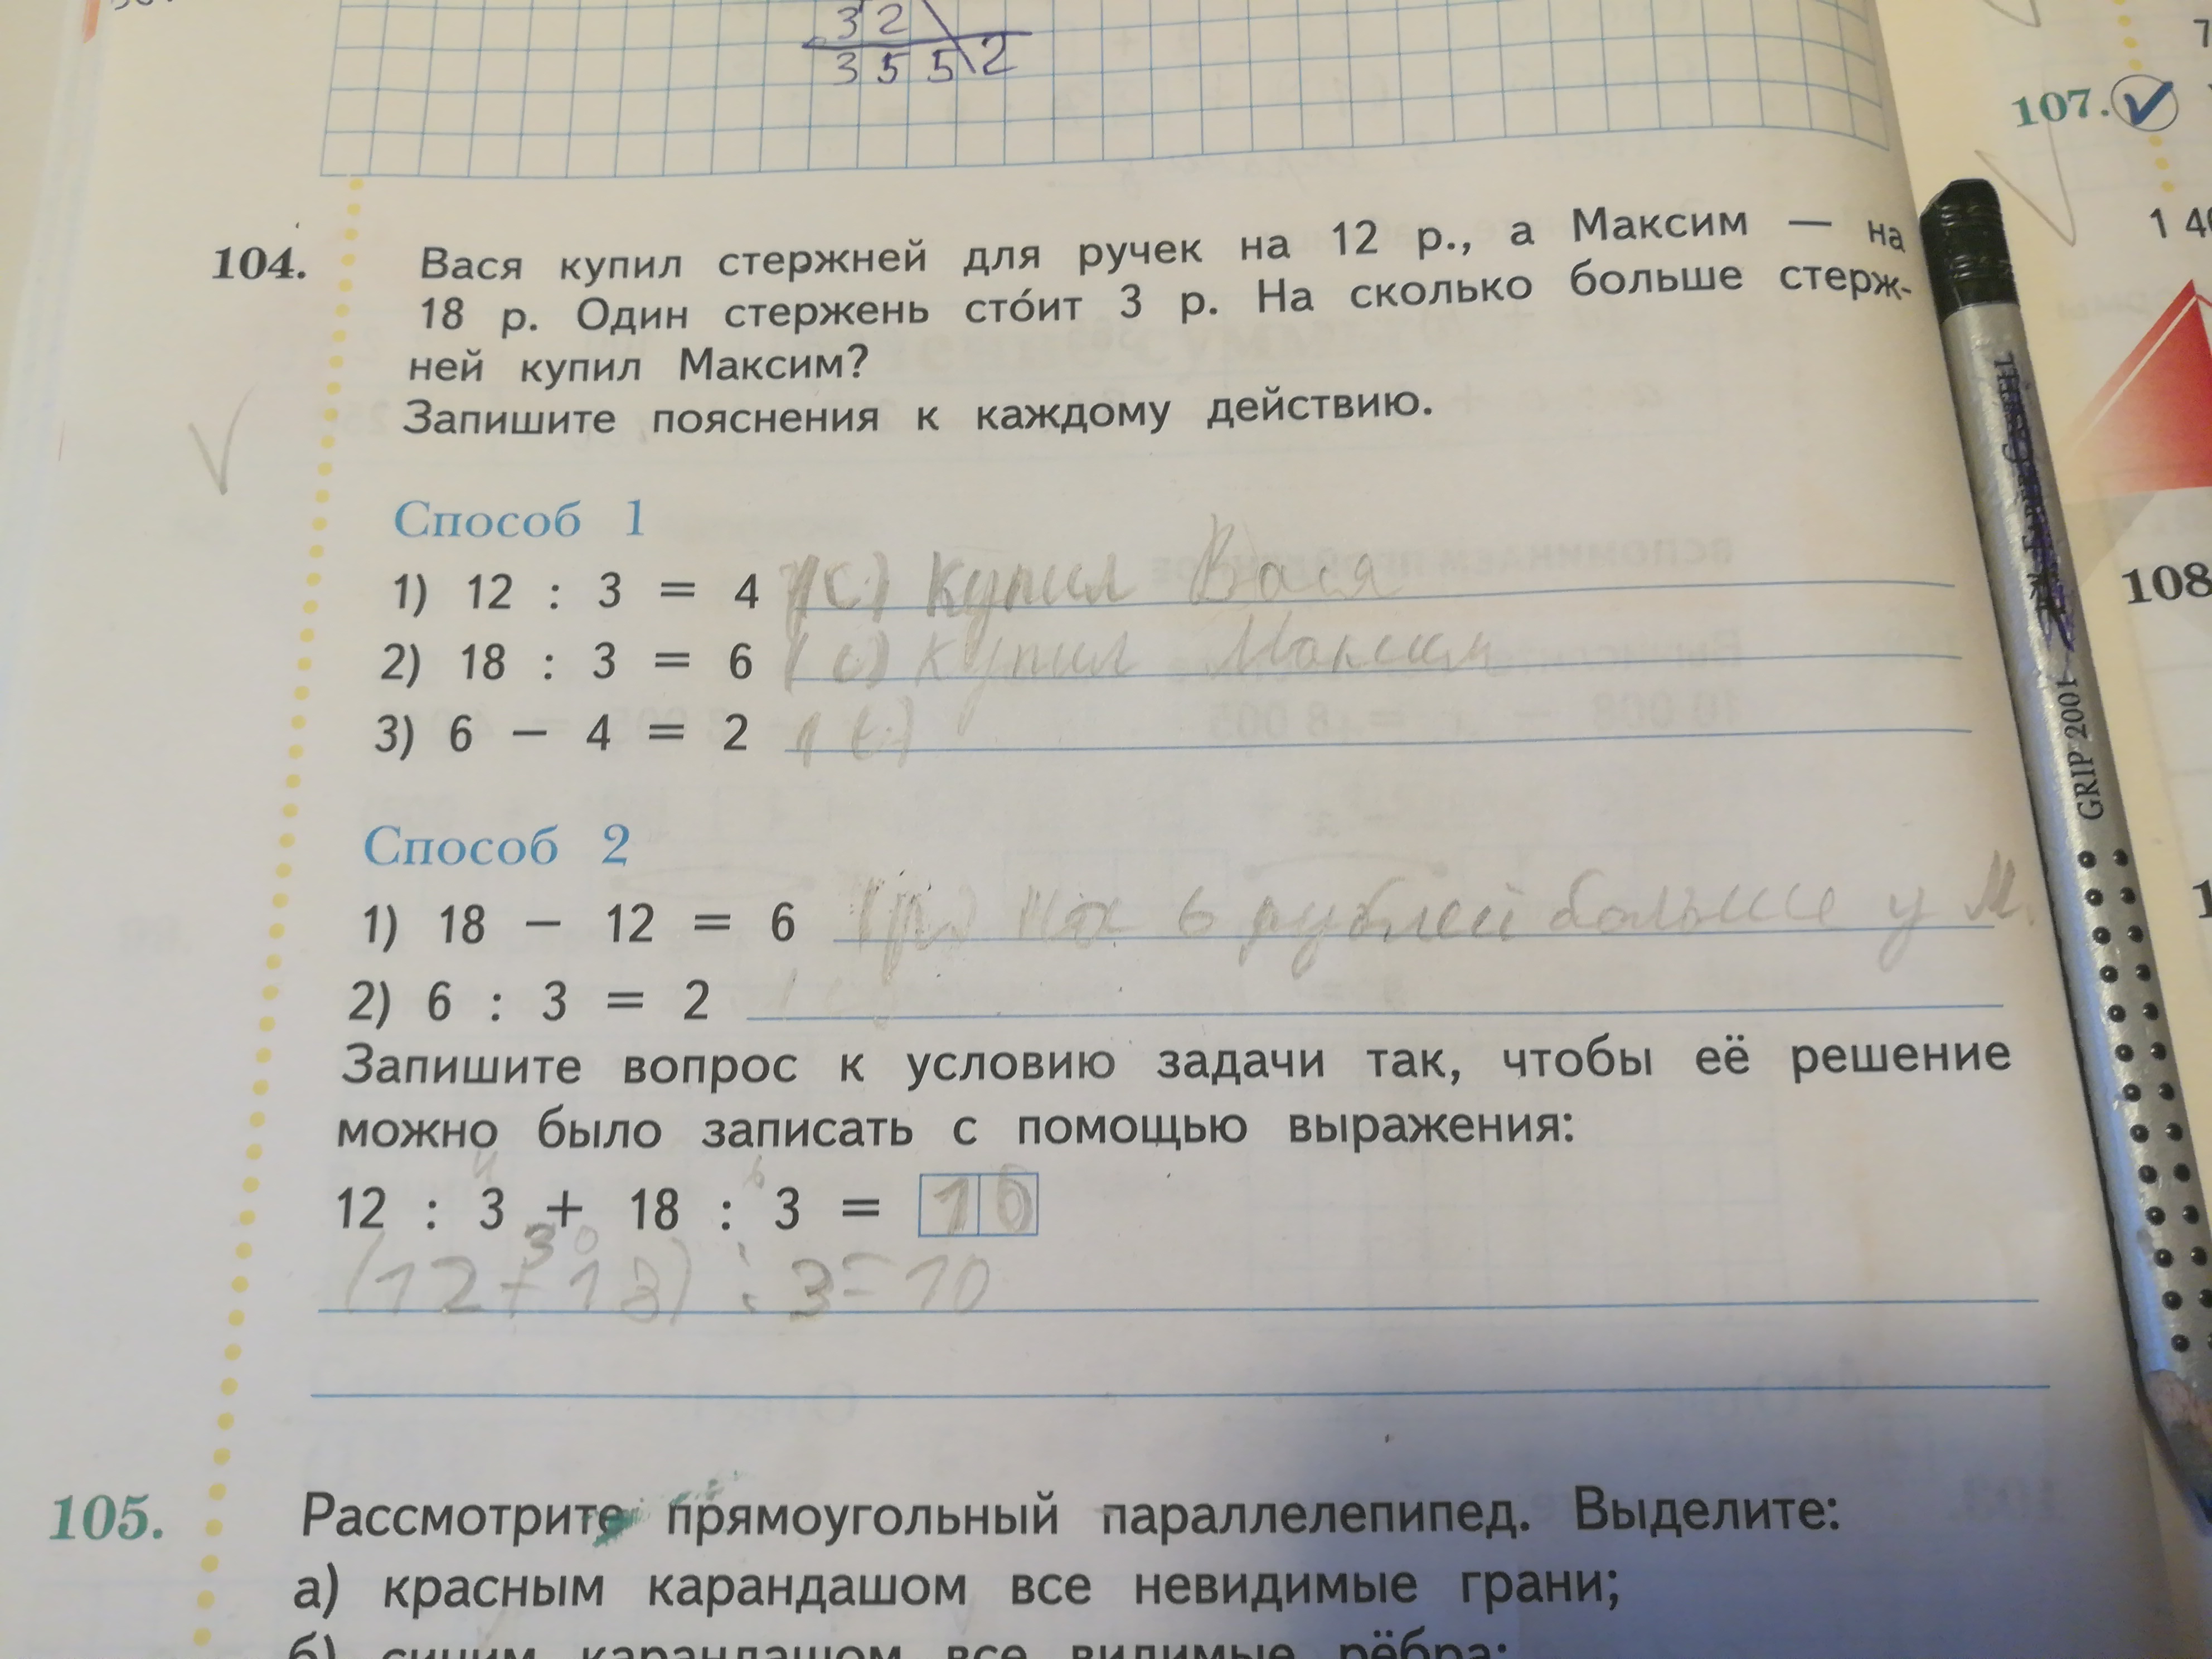 32
35512
107.
104. Вася купил стержней для ручек на 12 р., а Максим — на
18 р. Один стержень сто́ит 3 р. На сколько больше стерж-
ней купил Максим?
Запишите пояснения к каждому действию.
Способ 1
1) 12 : 3 = 4 (с) купил Вася
2) 18 : 3 = 6 (с) купил Максим
3) 6 − 4 = 2 (с)
Способ 2
1) 18 − 12 = 6 (р.) на 6 рублей больше у М.
2) 6 : 3 = 2
Запишите вопрос к условию задачи так, чтобы её решение
можно было записать с помощью выражения:
4 6
12 : 3 + 18 : 3 = 10
30
(12+18) : 3=10
105. Рассмотрите прямоугольный параллелепипед. Выделите:
а) красным карандашом все невидимые грани;
б) синим карандашом все видимые рёбра;
GRIP 2001
108